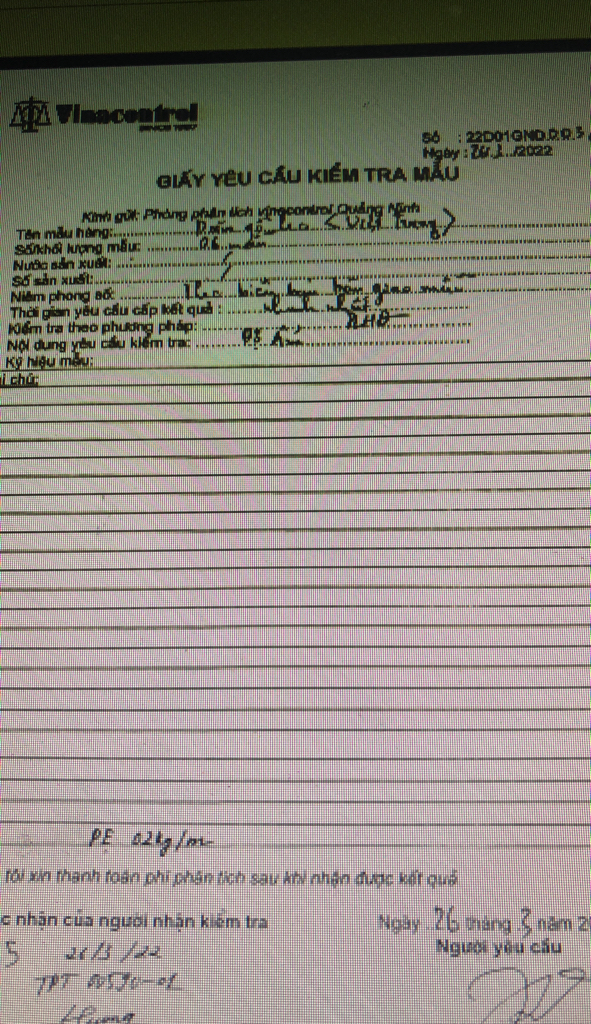 Vinacontrol
SINCE 1957
Số : 22D01GND
Ngày : 26/3/2022
GIẤY YÊU CẦU KIỂM TRA MẪU
Kính gửi: Phòng phân tích vinacontrol Quảng Ninh
Tên mẫu hàng:
Số/khối lượng mẫu: 06 mẫu
Nước sản xuất:
Số sản xuất:
Niêm phong số: Theo biên bản bàn giao mẫu
Thời gian yêu cầu cấp kết quả : Nhanh nhất
Kiểm tra theo phương pháp:
Nội dung yêu cầu kiểm tra: Độ Ẩm
Ký hiệu mẫu:
i chú:
PE 02kg/m
tôi xin thanh toán phí phân tích sau khi nhận được kết quả
c nhận của người nhận kiểm tra
Ngày 26 tháng 3 năm 2
Người yêu cầu
5 26/3/22
TPT 00590-01
Hương